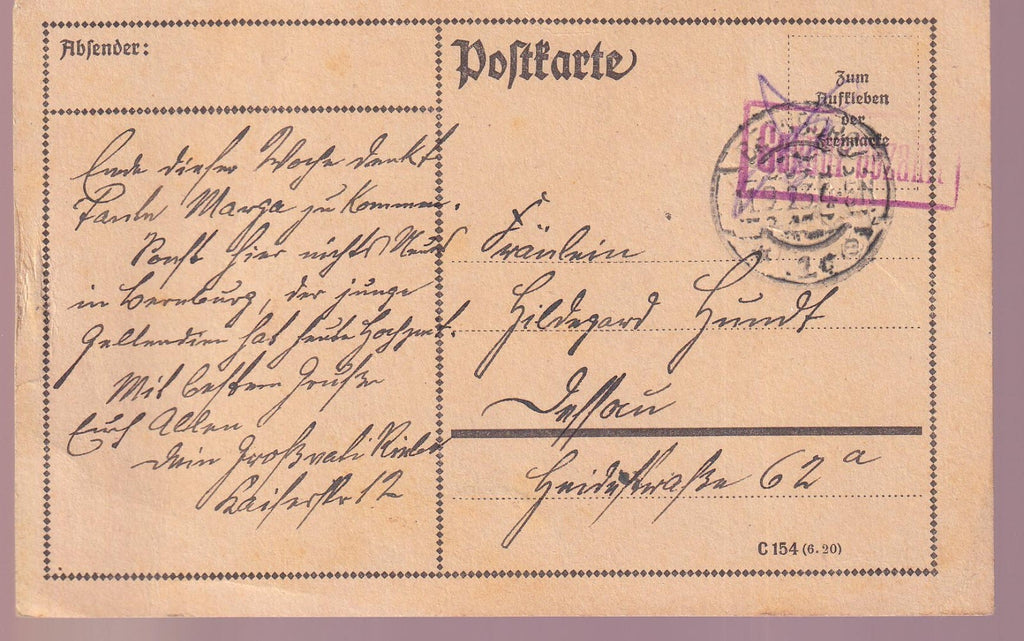 Absender:
Postkarte
Zum
Aufkleben
der
Freimarke
Ende dieser Woche denkt
Tante Marga zu kommen.
Sonst hier nichts Neues
in Bernburg, der junge
hat heute Hochzeit.
Mit besten Grüßen
Euch Allen
Dein Großvati
Kaiserstr 12
Fräulein
Hildegard Hundt
Dessau
Heidestraße 62 a
C 154 (6. 20)